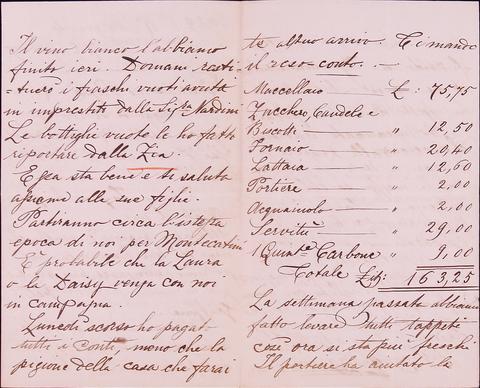 Il vino bianco l'abbiamo
finito ieri. Domani resti-
tuerò i fiaschi vuoti avuti
in imprestito dalla Sig.ra Nardini
Le bottiglie vuote le ho fatte
riportare dalla Zia.
Egea sta bene e ti saluta
assieme alle sue figlie.
Partiranno circa l'istessa
epoca di noi per Montecatini
E' probabile che la Laura
o la Daisy venga con noi
in campagna.
Lunedì scorso ho pagato
tutti i conti, meno che la
pigione della casa che farai
te al tuo arrivo. Ti mando
il reso-conto. —
Macellaio — £: 75,75
Zucchero, Candele e
Biscotti — " 12,50
Fornaio — " 20,40
Lattaia — " 12,60
Portiere — " 2,00
Acquaiuolo — " 2,00
Servitù — " 29,00
1 Quin.le Carbone " 9,00
Totale 163,25
La settimana passata abbiamo
fatto levare tutti tappeti
così ora si sta più freschi
Il portiere ha aiutato la